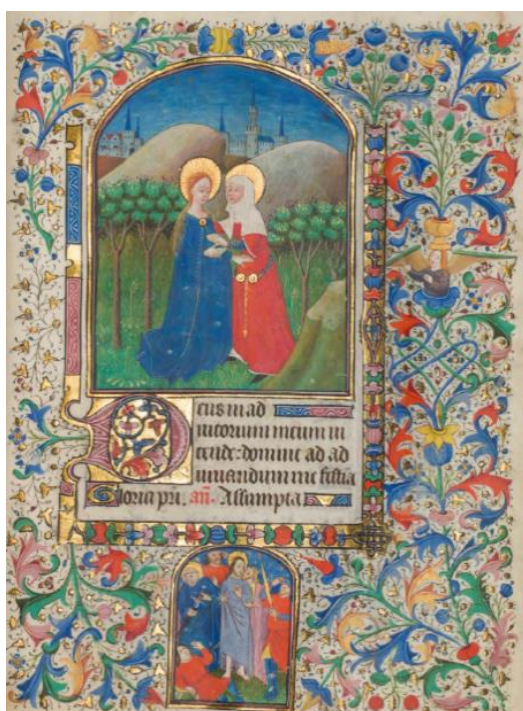 Deus in ad
iutorium meum in
tende: domine ad ad
iuuandum me festia
Gloria pri. añ. Assumpta